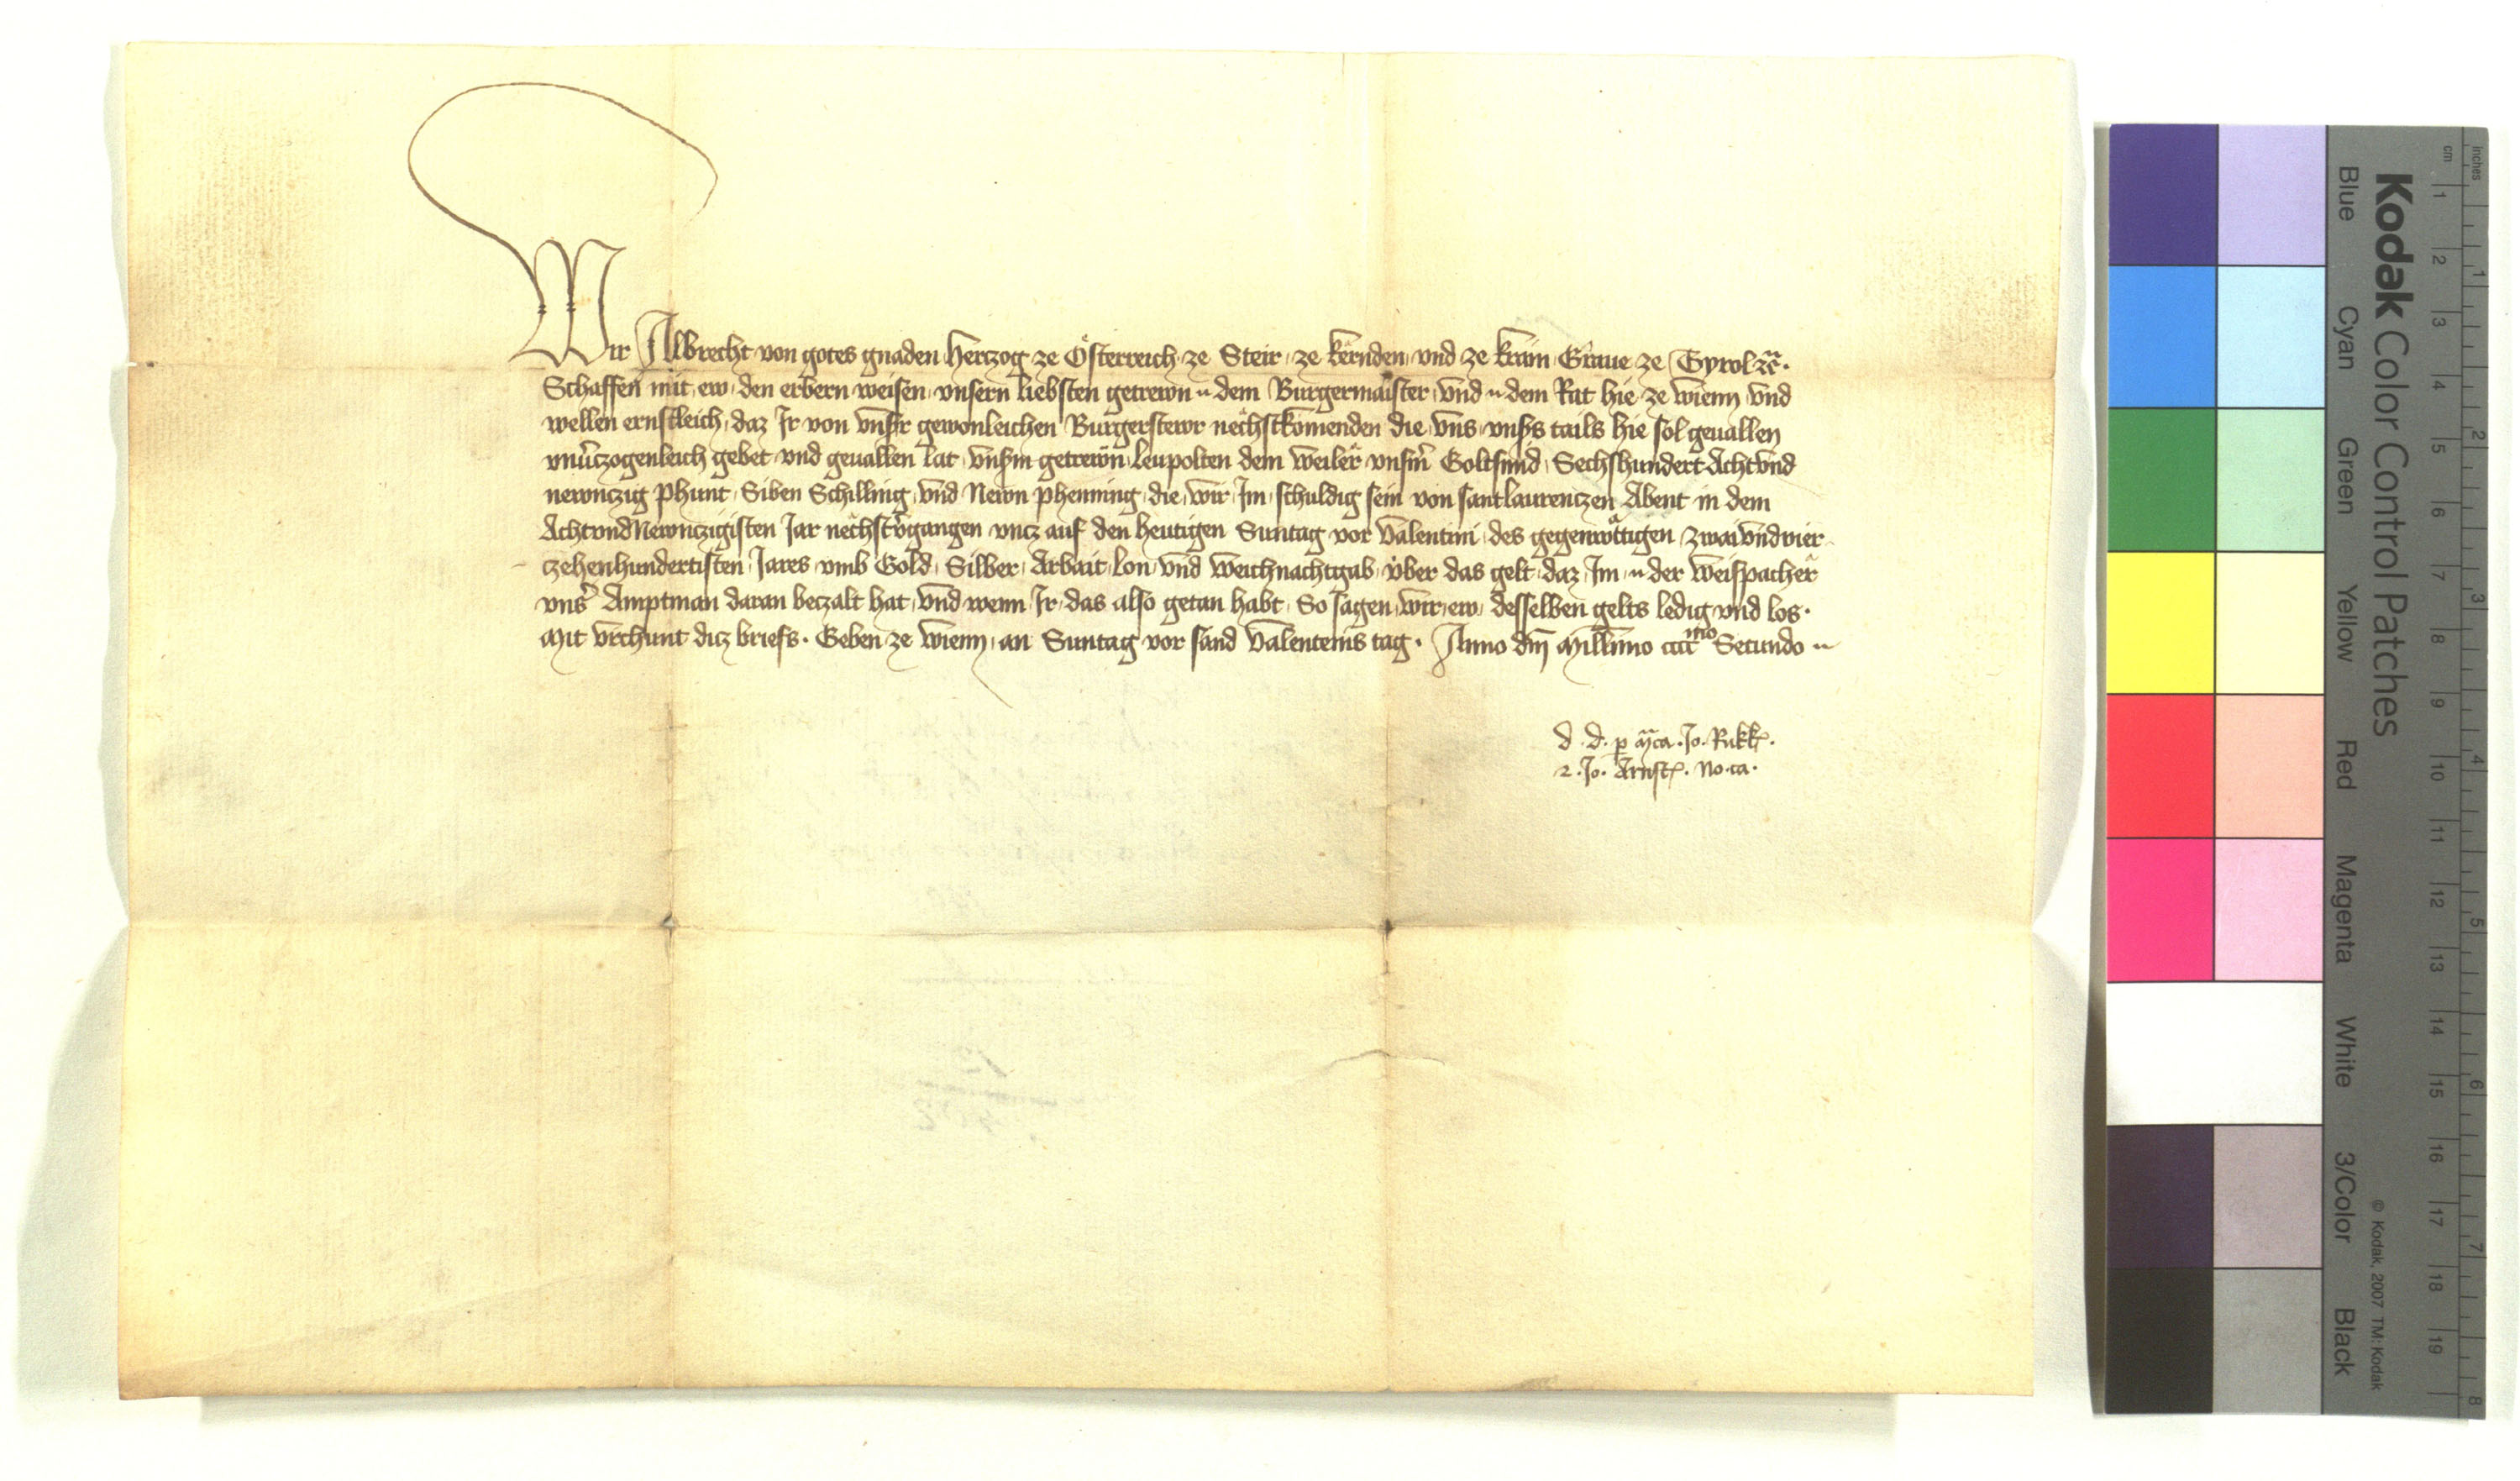 Wir Albrecht von gotes gnaden Hertzog ze Österreich ze Steir ze kernden vnd ze krain Graue ze Tyrol ꝛc̃.
Schaffen mit ew den erbern weisen vnsern liebsten getrewn .. dem Burgermaister vnd .. dem Rat hie ze wienn vnd
wellen ernstleich daz Jr von vnsr gewonleichen Burgerstewr nechstkomenden die vns vnss tails hie sol geuallen
vnu̇czogenleich gebet vnd geuallen lat vnsm getrewn Leupolten dem weiler vnsm̄ Goltsmid Sechshundert Achtvnd
newnczig phunt Siben Schilling vnd Newn phenning die wir Jm schuldig sein von sant laurenczen Abent in dem
AchtvndNewnczigisten Jar nechstv̇gangen vncz auf den heutigen Suntag vor Valentini des gegenwu̇ttigen zwaivndvier
czehenhundertisten Jares vmb Gold Silber Arbait lon vnd weichnachtgab vber das gelt daz Jm .. der weispacher
vns̉ Amptman daran beczalt hat vnd wenn Jr das also getan habt So sagen wir ew desselben gelts ledig vnd los.
Mit vrchunt dicz briefs. Geben ze wienn an Suntag vor sand Valenteins tag. Anno dm̄ Millm̄o cccc^mo Secundo ..
d. d. p m̄ca. Jo. Rukk.
2. Jo. Arnst. No. ca.
Kodak Color Control Patches
Blue Cyan Green Yellow Red Magenta White 3/Color Black
© Kodak, 2007 TM: Kodak
inches 1 2 3 4 5 6 7 8
cm 1 2 3 4 5 6 7 8 9 10 11 12 13 14 15 16 17 18 19